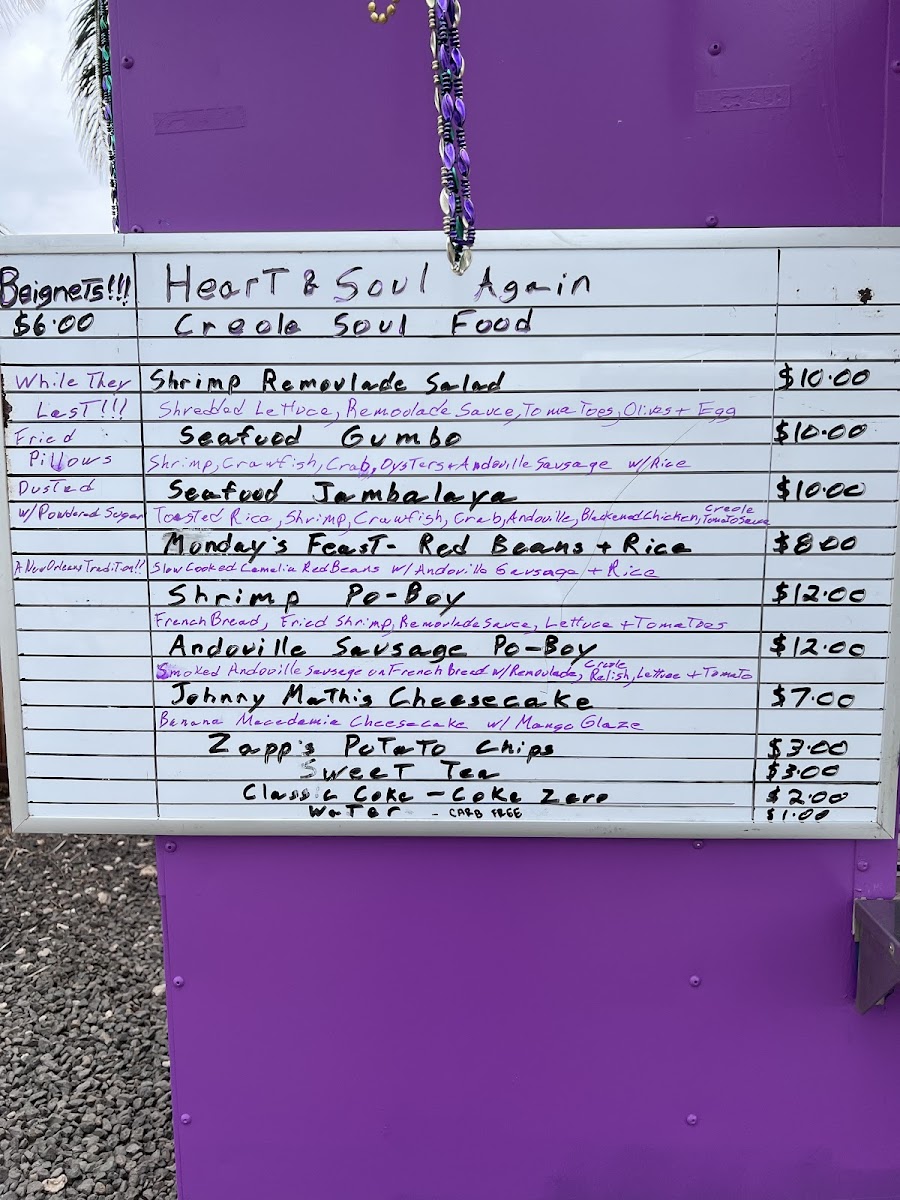 Beignets!!!
$6.00
While They
Last!!!
Fried
Pillows
Dusted
w/Powdered Sugar
A New Orleans Tradition!!
Heart & Soul Again
Creole Soul Food
Shrimp Remoulade Salad $10.00
Shredded Lettuce, Remoolade Sauce, Tomatoes, Olives + Egg
Seafood Gumbo $10.00
Shrimp, Crawfish, Crab, Oysters + Andoville Sausage w/Rice
Seafood Jambalaya $10.00
Toasted Rice, Shrimp, Crawfish, Crab, Andoville, Blackened Chicken, Creole Tomato Sauce
Monday's Feast- Red Beans + Rice $8.00
Slow Cooked Camelia Red Beans w/Andoville Sausage + Rice
Shrimp Po-Boy $12.00
French Bread, Fried Shrimp, Remoulade Sauce, Lettuce + Tomatoes
Andoville Sausage Po-Boy $12.00
Smoked Andoville Sausage on French Bread w/Remoulade, Creole Relish, Lettuce + Tomato
Johnny Mathis Cheesecake $7.00
Banana Macedamia Cheesecake w/ Mango Glaze
Zapp's Potato Chips $3.00
Sweet Tea $3.00
Classic Coke - Coke Zero $2.00
Water - CARB FREE $1.00